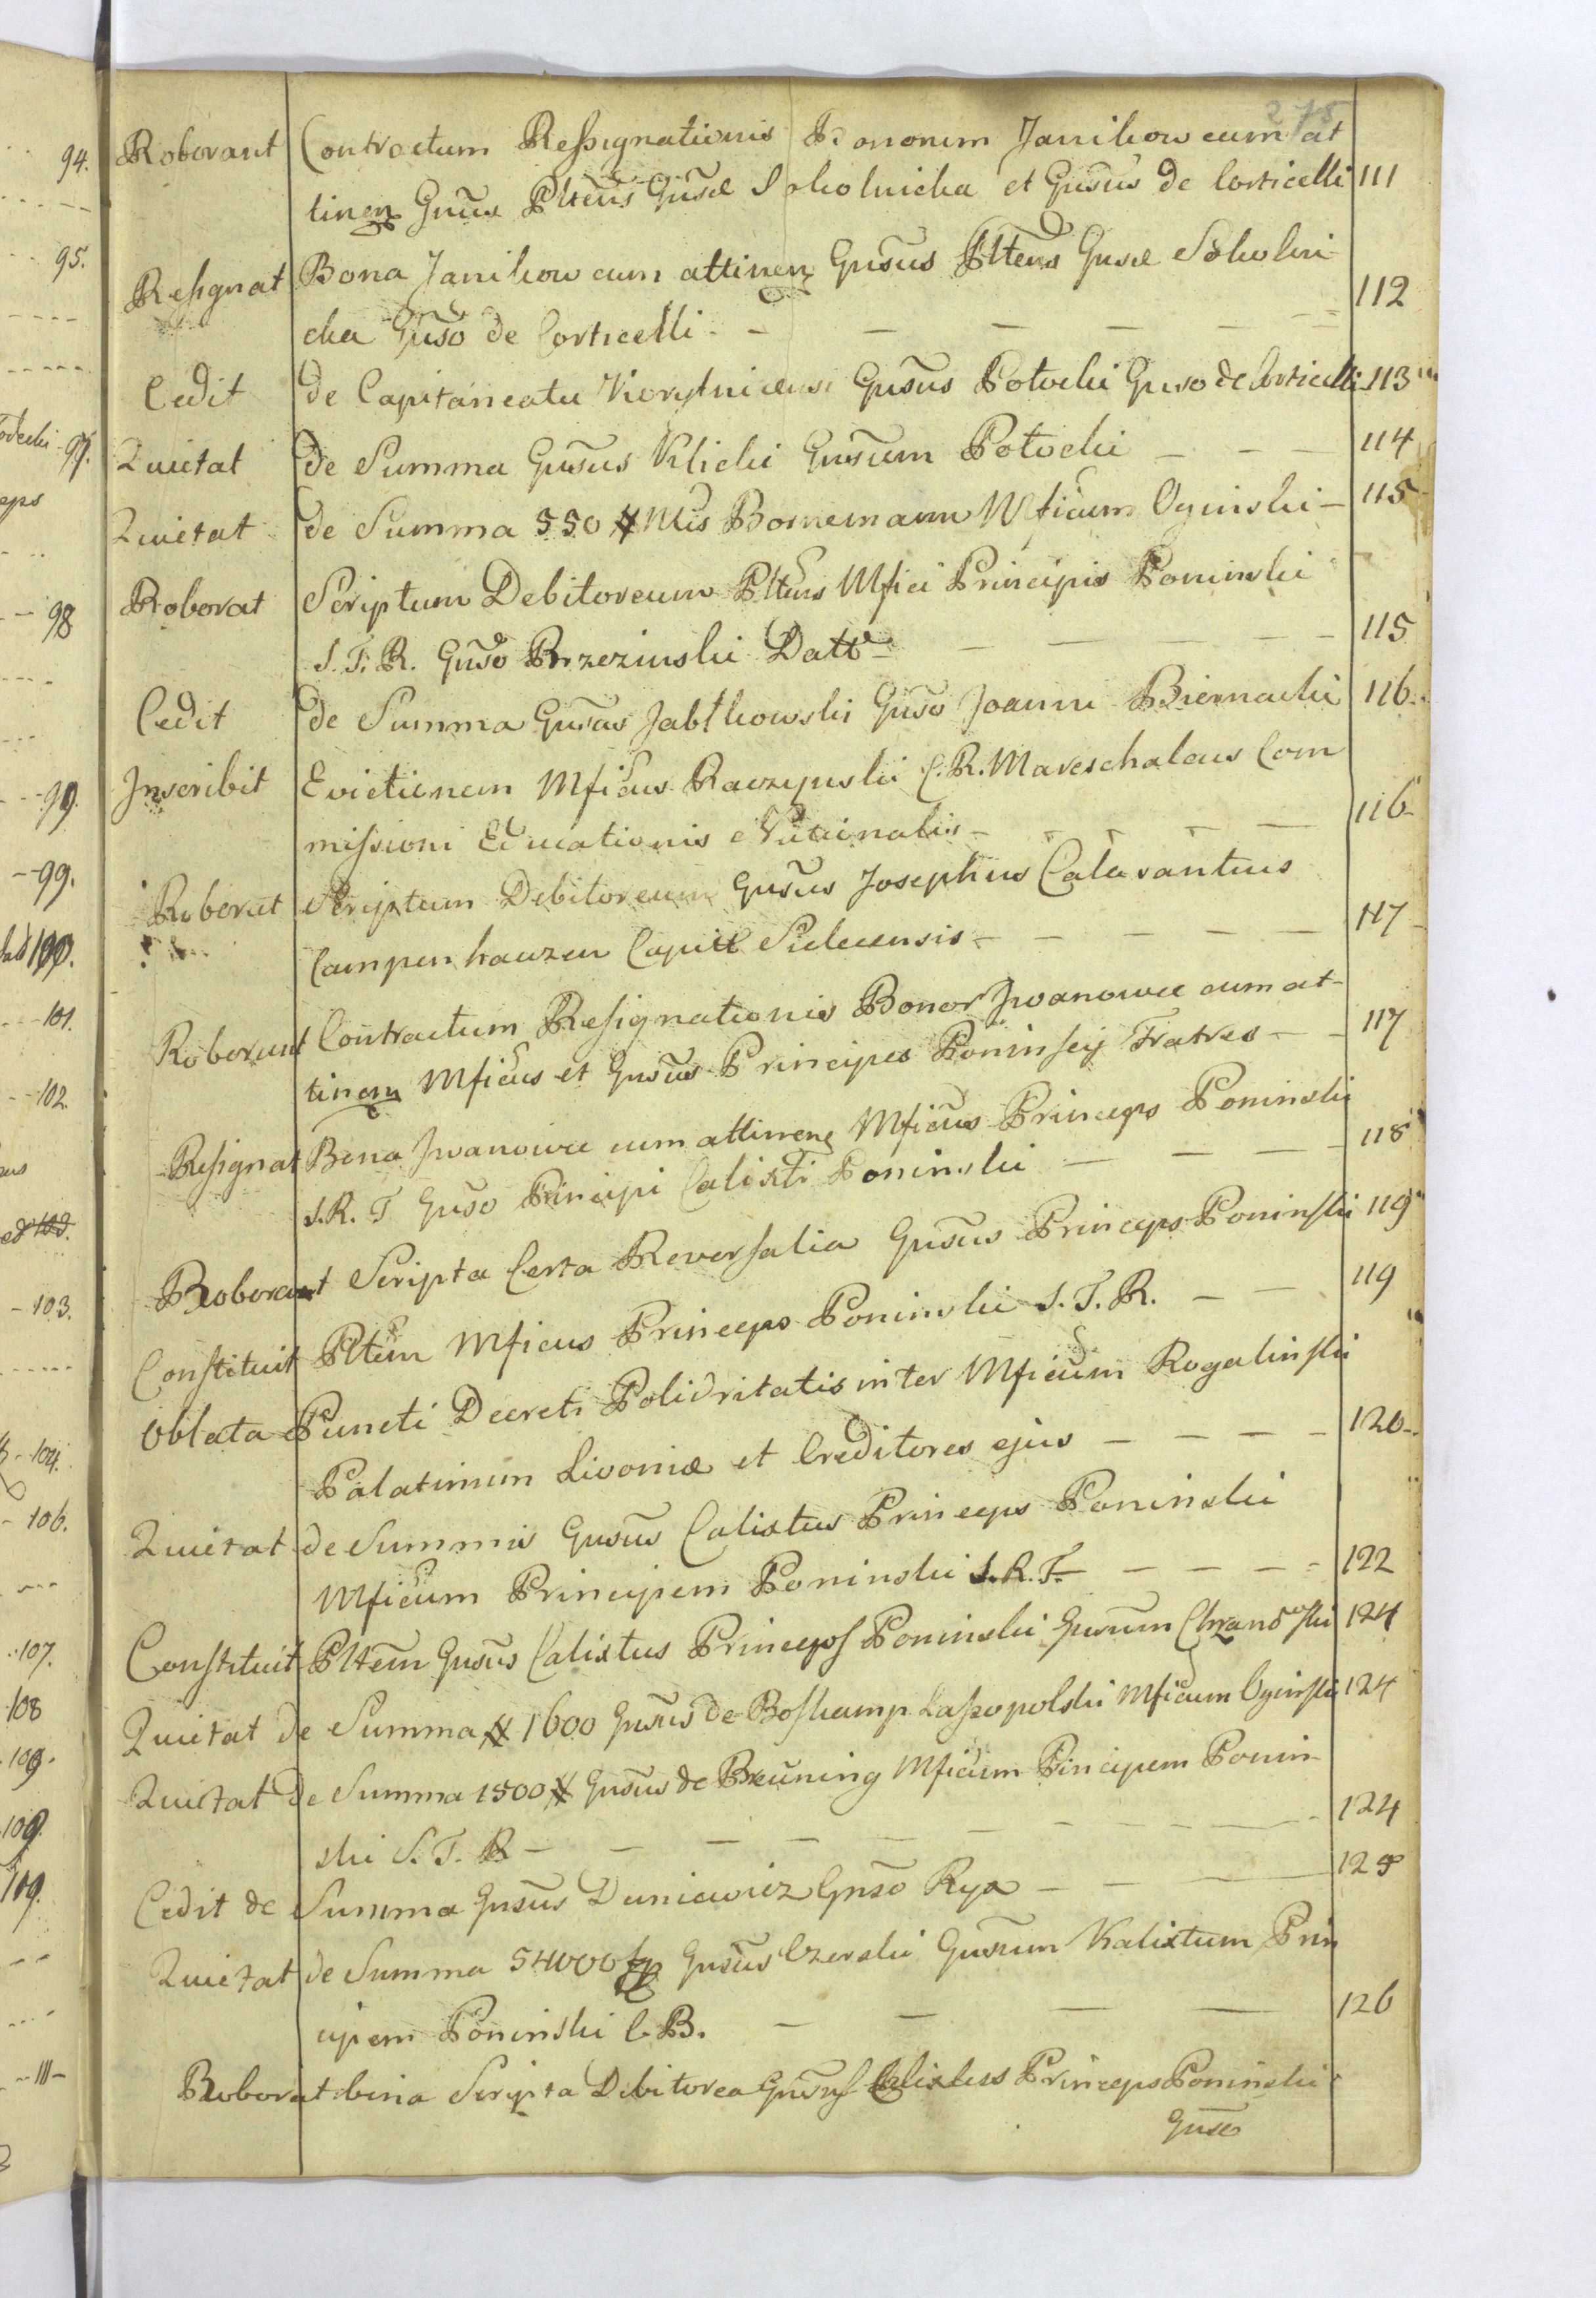 275
Roborant Contractum Resignationis Bonorum Janikow cum at
tinen Gnũse Pltẽus Gnsæ Sokolnicka et Gnsũus de Corticelli 111
Resignat Bona Janikow cum attinen Gnsũus Pltẽns Gnsæ Sokolni
cka Gnsõ de Corticelli - - - - - - 112
Cedit de Capitaneatu Gnsũus Potocki Gnso de Corticelli 113
Quietat de Summa Gnsũus Klicki Gnsũum Potocki - - - 114
Quietat de Summa 550 # Mis Bornemann Mficum Oginski - 115
Roborat Scriptum Debitoreum Pltẽns Mfici Principis Poninski
S. T. R. Gnsõ Brzezinski Datt - - - - - 115
Cedit de Summa Gnsũus Jabłkowski Gnsõ Joanni Biernacki 116
Inscribit Evictionem Mficus Raczynski C. R. Mareschalcus Com
missioni Educationis - - - - - 116
Roborat Scriptum Debitoreum Gnsũus Josephus Calasantius
Campenhauzen Capit - - - - - 117
Roborant Contractum Resignationis Bonor Iwanowce cum at-
tinen Mficus et Gnsũus Principes Poninscij Fratres - - 117
Resignat Bona Iwanowce cum attinen Mficus Princeps Poninski
S. R. T Gnso Principi Calixti Poninski - - - - 118
Roborant Scripta Certa Reversalia Gnsũus Princeps Poninski 119
Constituit Pltẽm Mficus Princeps Poninski S. T. R. - - 119
Oblata Puncti Decreti Polioritatis inter Mficum Rogalinski
Palatinum Livoniæ et Creditores ejus - - - - 120
Quietat de Summis Gnsũus Calixtus Princeps Poninski
Mficum Principem Poninski S. R. T. - - - - 122
Constituit Pltẽm Gnsũus Calixtus Princeps Poninski Gnsum 124
Quietat de Summa # 1600 Gnsũus de Boskamp Lasopolski Mficum Oginski 124
Quietat de Summa 1500 # Gnsũus de Breuning Mficum Principem Ponin-
ski S. T. R - - - - - - - - 124
Cedit de Summa Gnsũus Duniewicz Gnsõ Ryx - - - 125
Quietat de Summa 54000 fp Gnsũus Czerski Gnsum Kalixtum Prin
cipem Poninski C. B. - - - - 126
Roborat bina Scripta Debitorea Gnsũus Calixtus Princeps Poninski
Gnso
94.
95.
97.
eps
98
99.
99.
100.
101.
102.
103.
103.
104.
106.
107.
108
109.
109.
109.
111